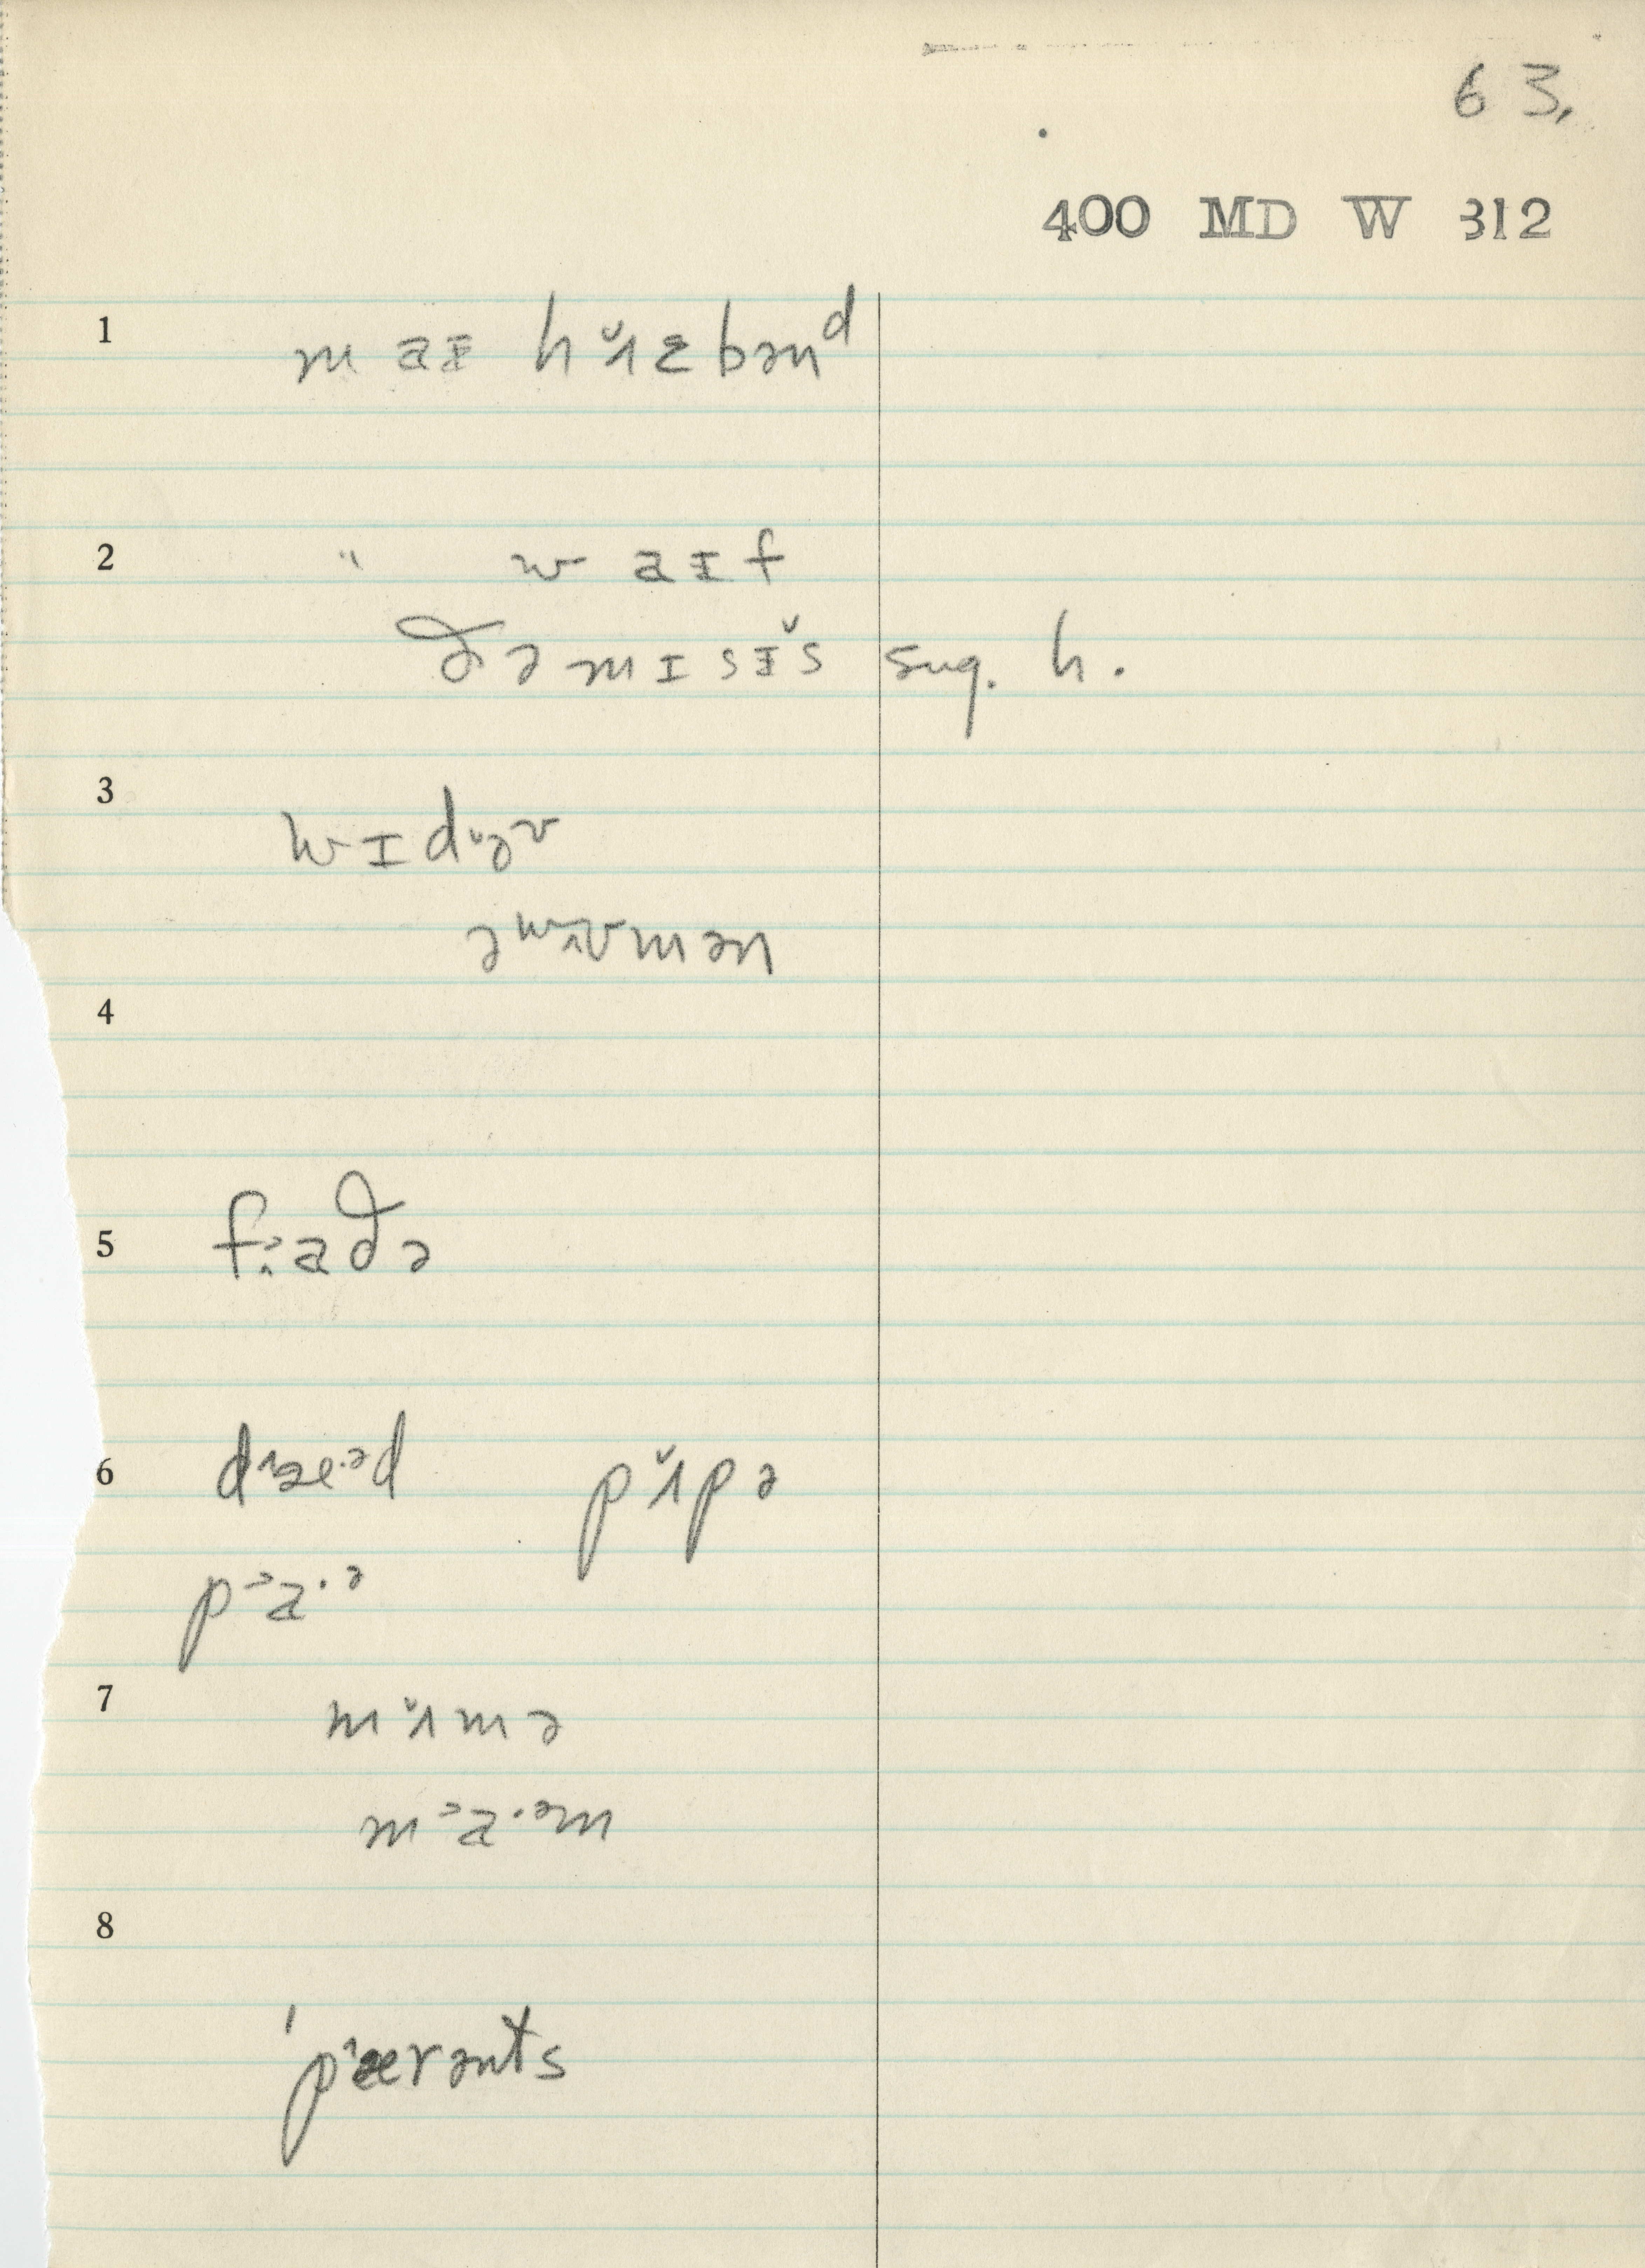 63.
400 MD W 312
1 m aɪ hʌ̆zbənᵈ
2 " w aɪ f
ðə mɪsɪ̆s sug. h.
3 wɪdəᵛ
əʷʌᵛmən
4
5 fɑðə
6 dæ·ᵊd pʌ̆pə
pᵊa·ᵊ
7 mʌ̆mə
mᵊa·ᵊm
8
'pærənts